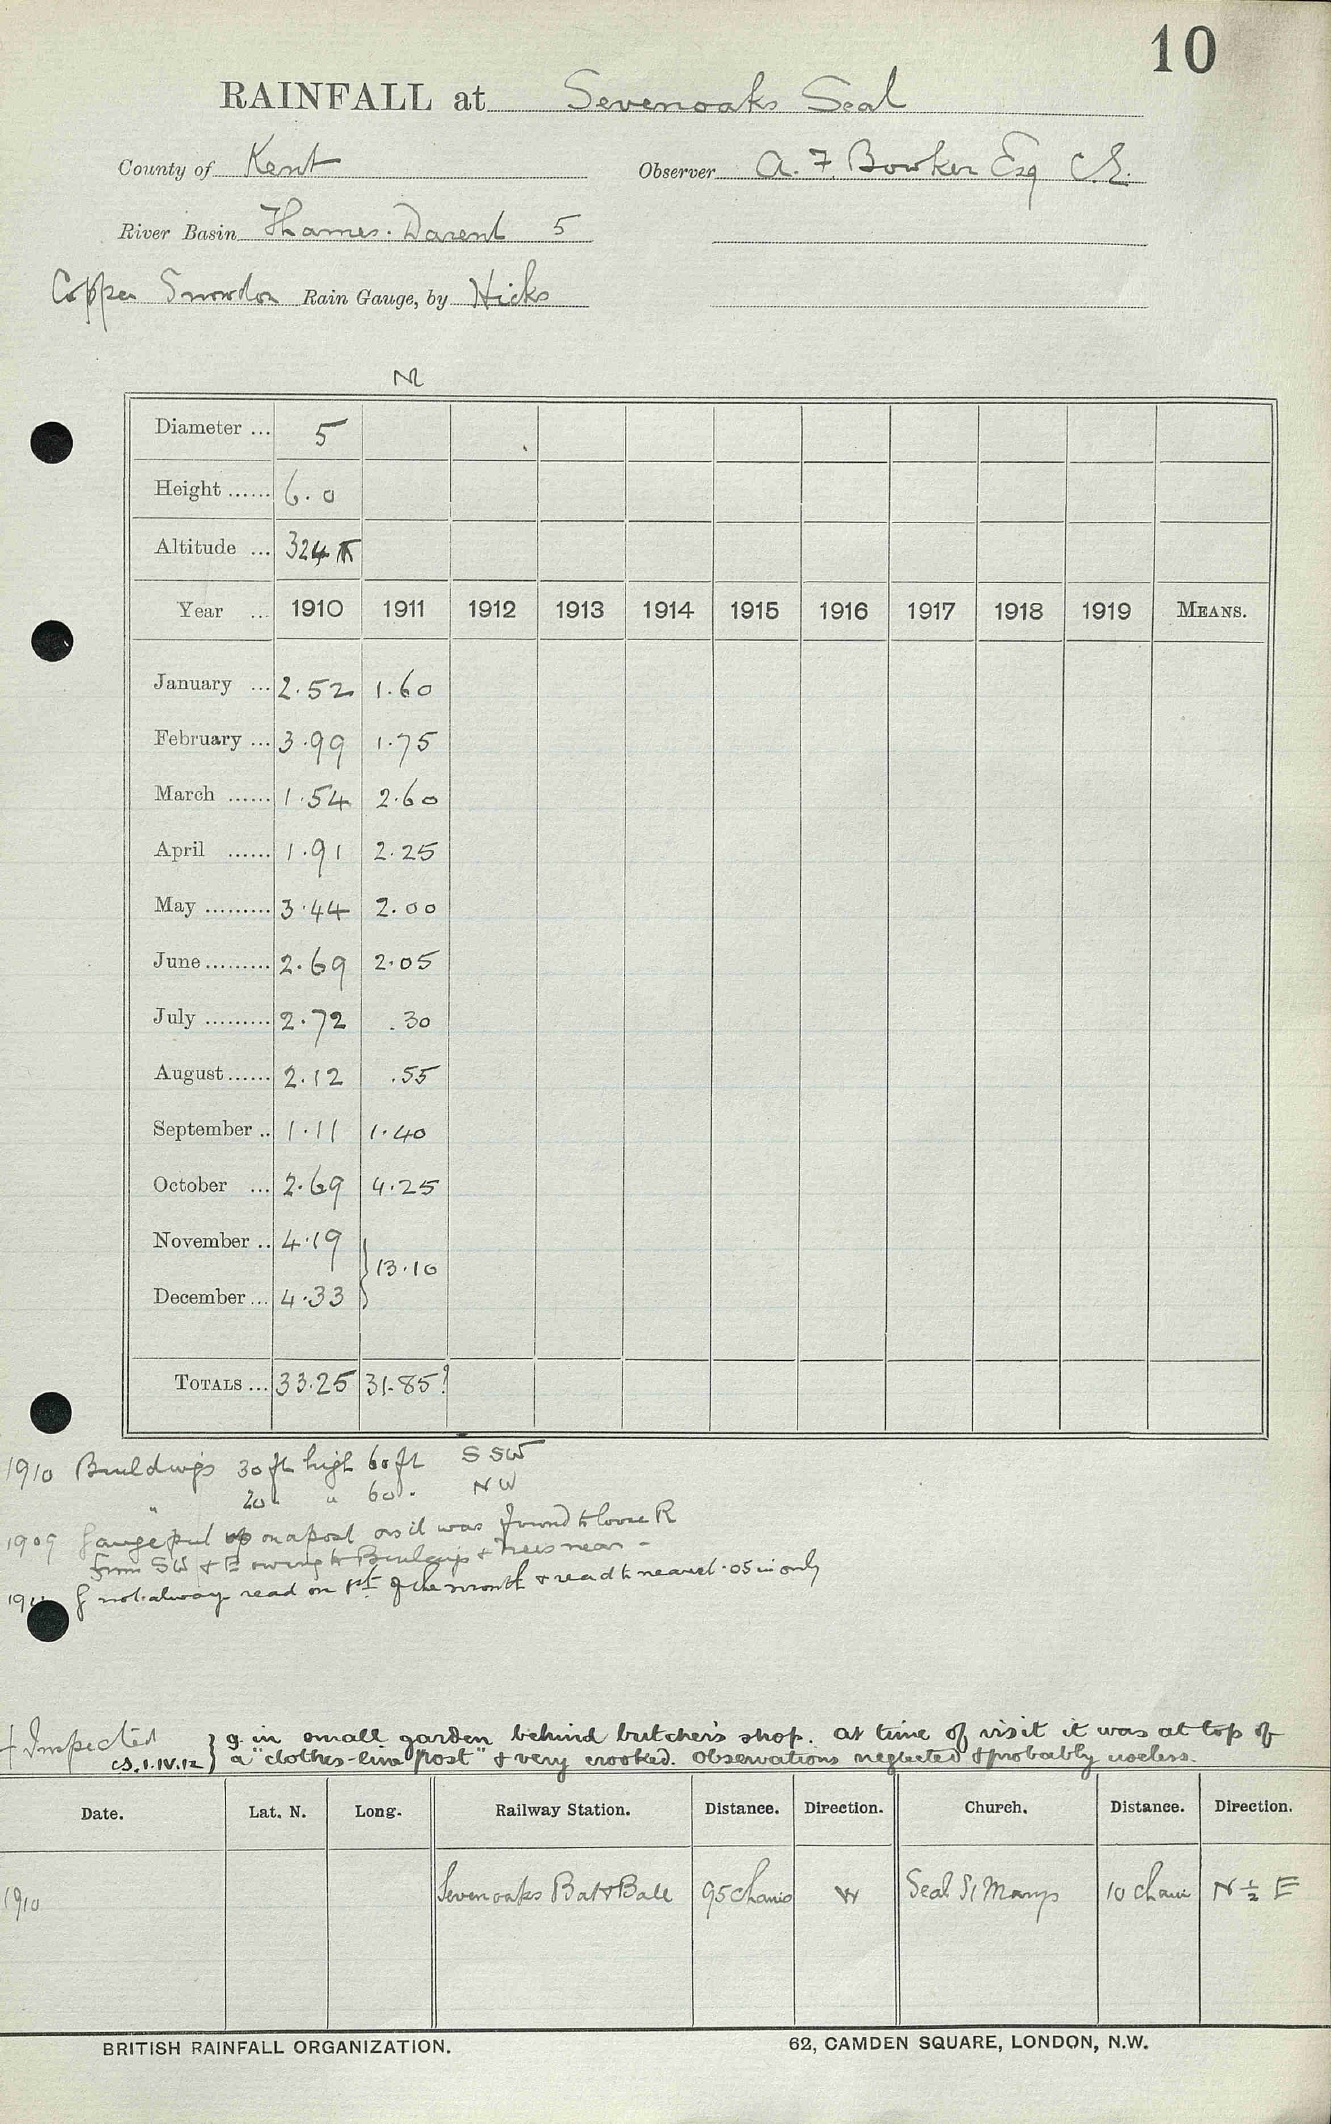 10
RAINFALL at Sevenoaks Seal
County of Kent Observer A. F. Bowker Esq C.E.
River Basin Thames. Darent 5
Copper Snowdon Rain Gauge, by Hicks
Diameter ... 5
Height ...... 6.0
Altitude ... 324
Year ... 1910 1911 1912 1913 1914 1915 1916 1917 1918 1919 MEANS.
January ... 2.52 1.60
February ... 3.99 1.75
March ...... 1.54 2.60
April ...... 1.91 2.25
May ......... 3.44 2.00
June ......... 2.69 2.05
July ......... 2.72 .30
August ...... 2.12 .55
September .. 1.11 1.40
October ... 2.69 4.25
November .. 4.19
13.10
December ... 4.33
TOTALS ... 33.25 31.85?
1910 Buildings 30 ft high 60 ft SSW
" 20 " 60 . NW
1909 Gauge put up on a post as it was found to loose R
from SW & E owing to Buildings & Trees near -
G not always read on 1st of the month & read to nearest .05 in only
+ Inspected } g in small garden behind butcher's shop. At time of visit it was at top of
CS. 1.IV.12 } a "clothes-line post" & very crooked. Observations neglected & probably useless.
Date. Lat. N. Long. Railway Station. Distance. Direction. Church. Distance. Direction.
1910 Sevenoaks Bat & Ball 95 chains W Seal St Marys 10 chain N ½ E
BRITISH RAINFALL ORGANIZATION. 62, CAMDEN SQUARE, LONDON, N.W.